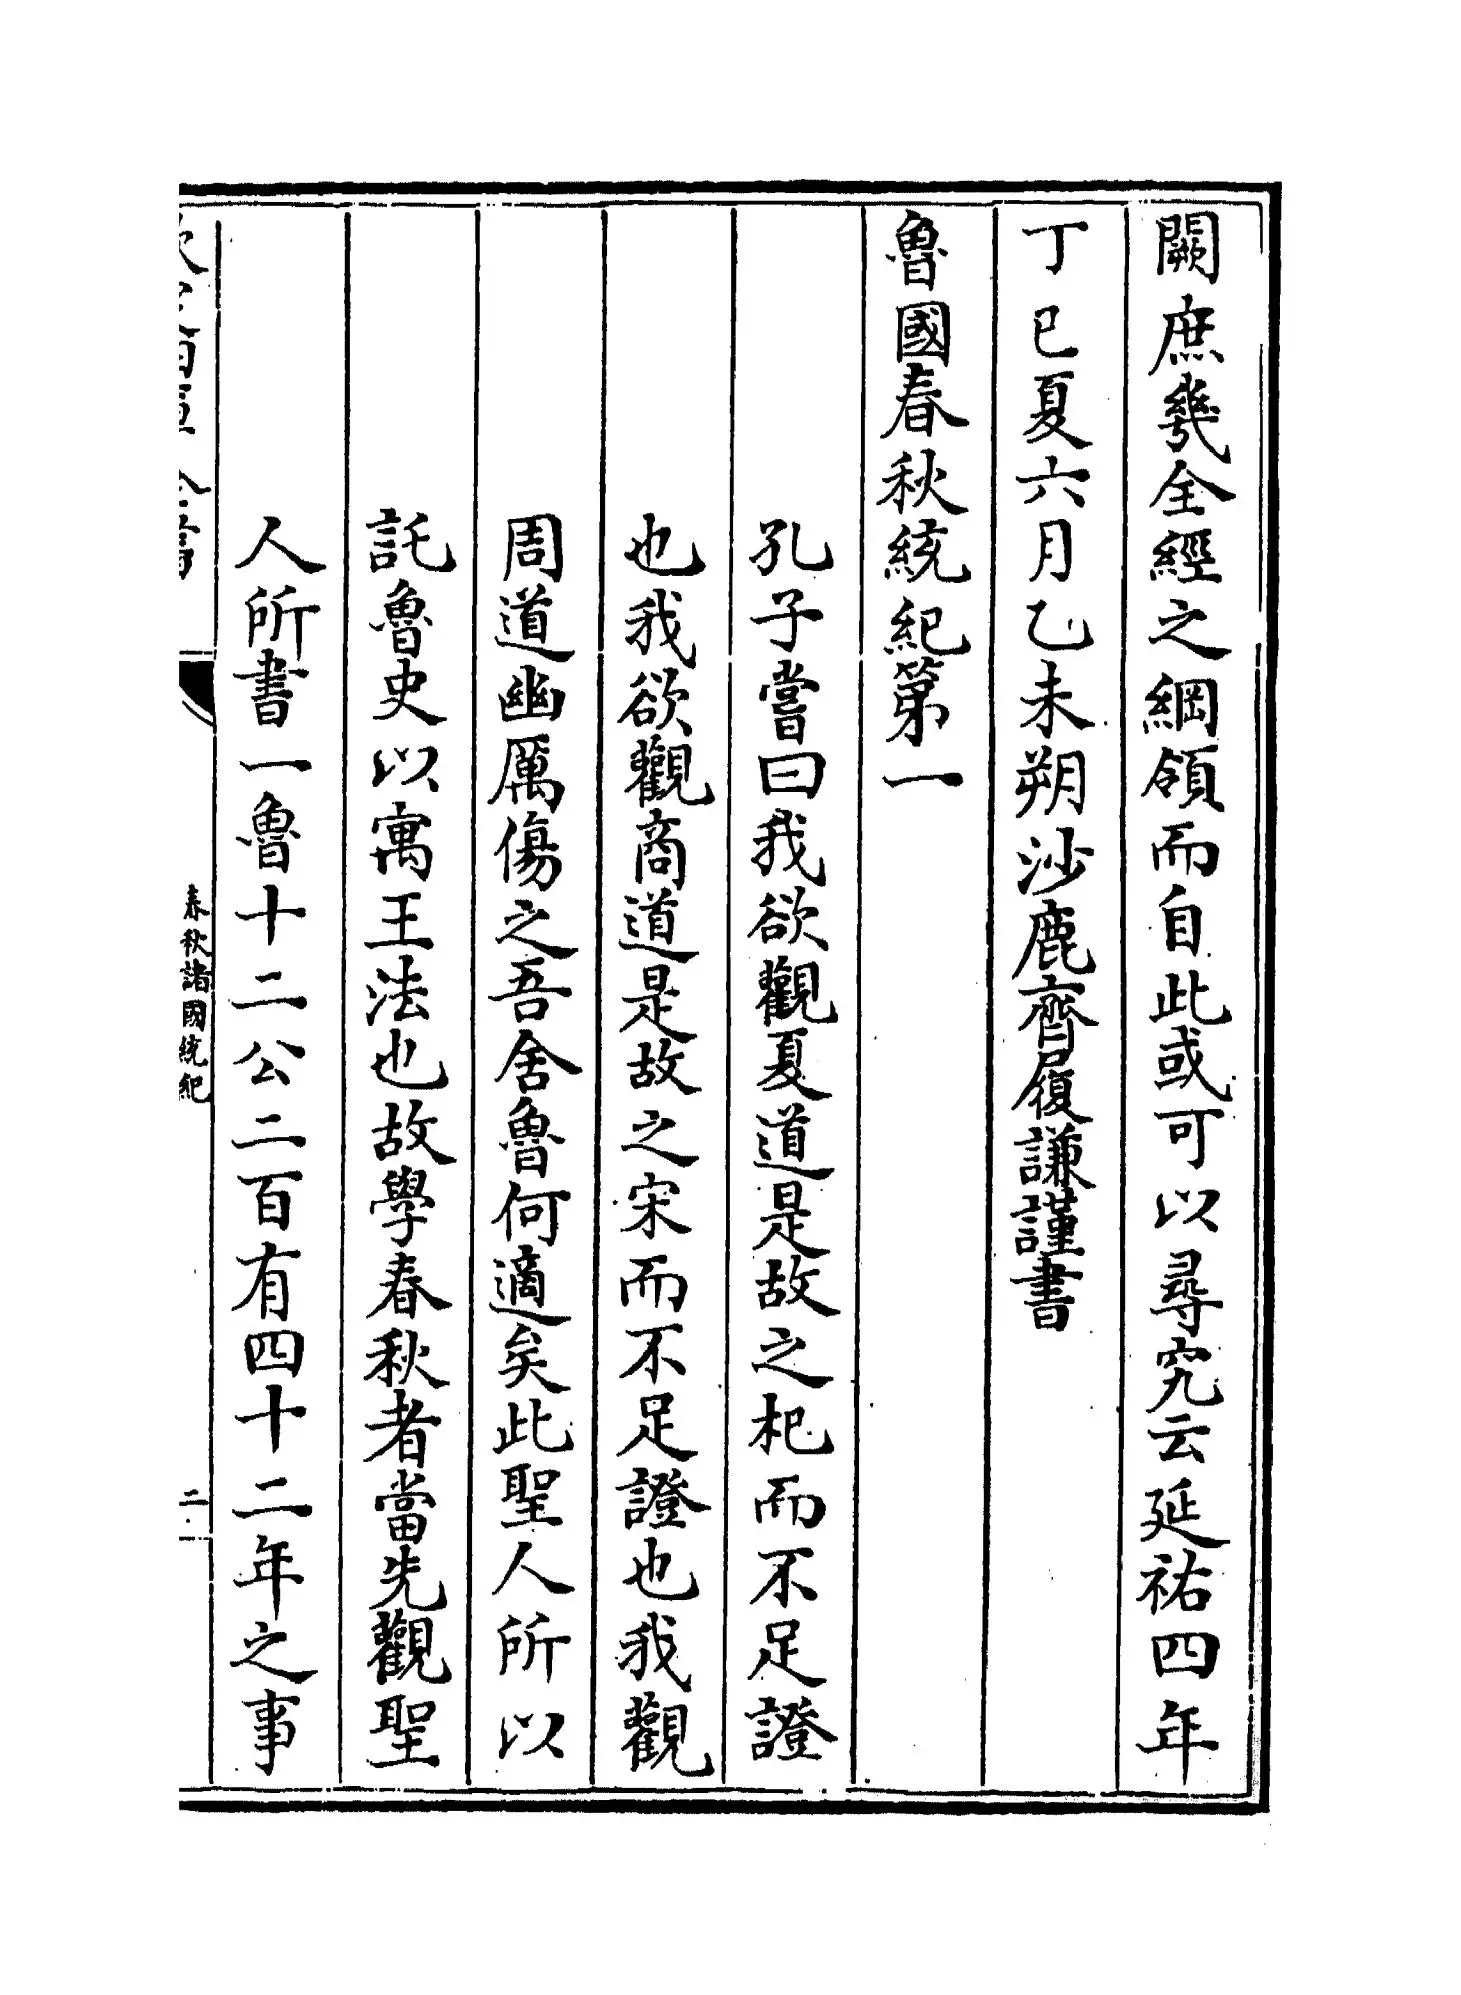 闕庶幾全經之綱領而自此或可以尋究云延祐四年
丁巳夏六月乙未朔沙鹿齊履謙謹書
魯國春秋統紀第一
孔子嘗曰我欲觀夏道是故之杞而不足證
也我欲觀商道是故之宋而不足證也我觀
周道幽厲傷之吾舍魯何適矣此聖人所以
託魯史以寓王法也故學春秋者當先觀聖
人所書一魯十二公二百有四十二年之事
春秋諸國統紀
二